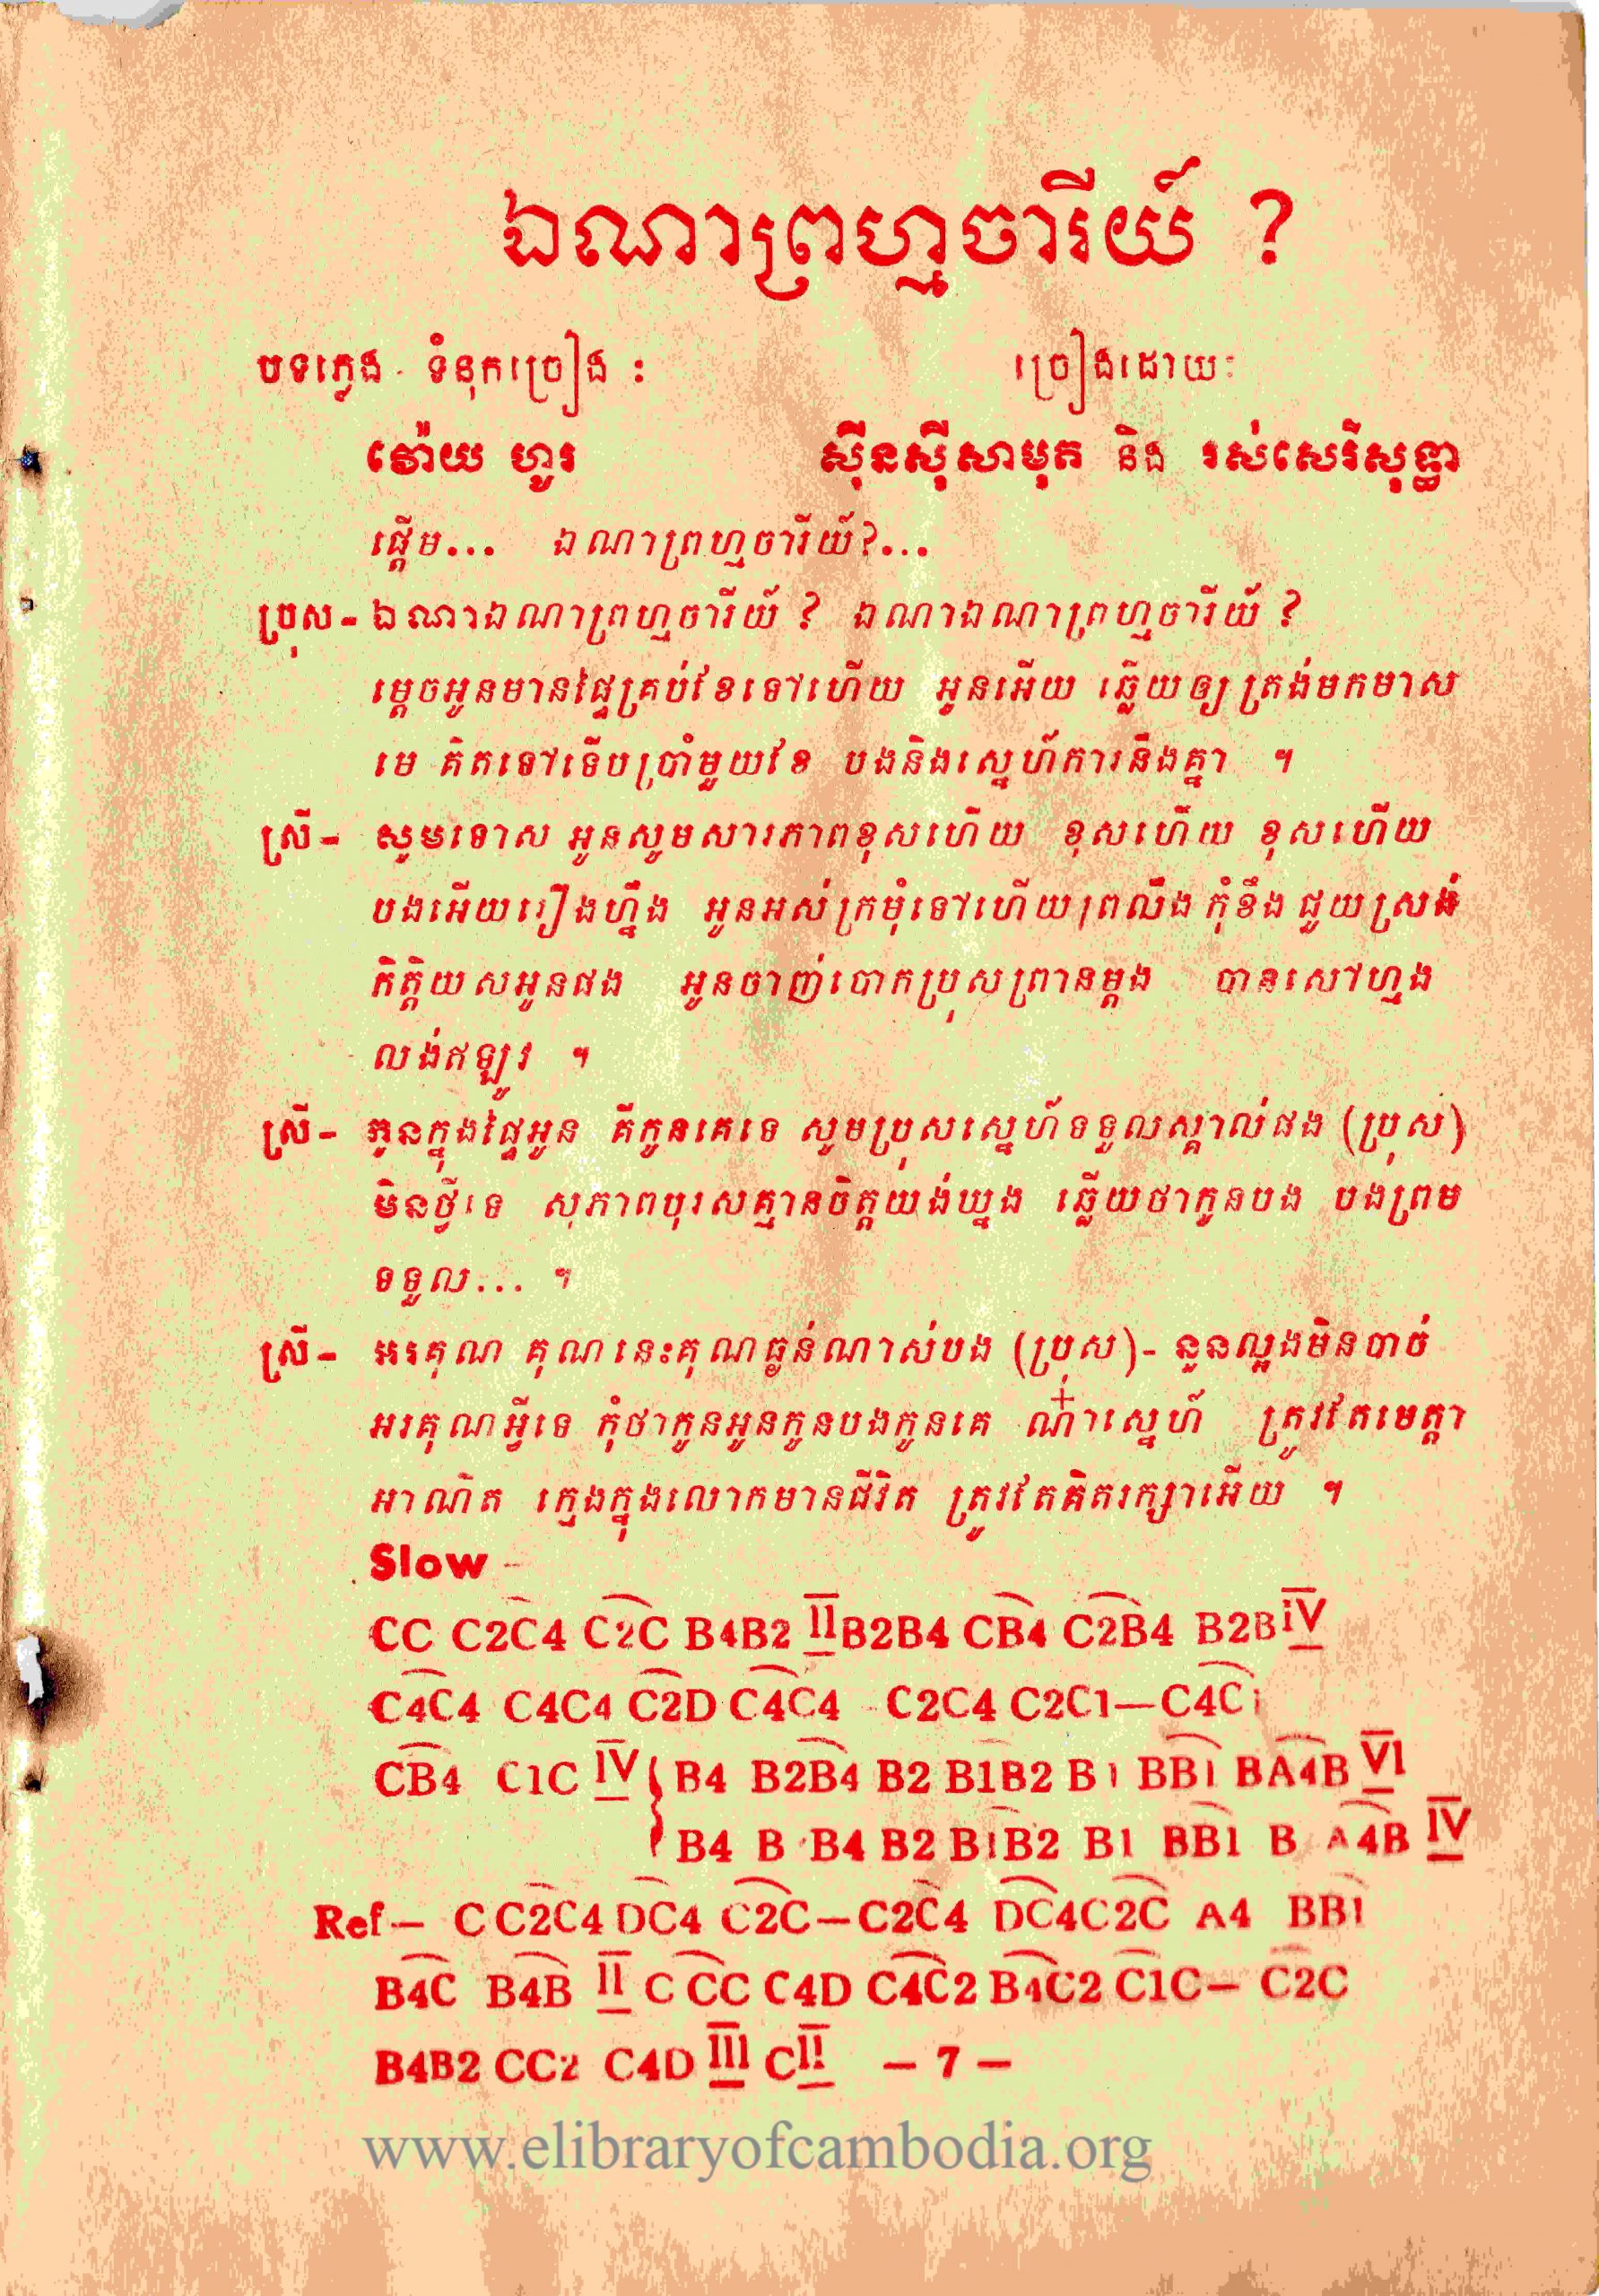 ឯណាព្រហ្មចារីយ៍ ?
បទភ្លេង - ទំនុកច្រៀង : ច្រៀងដោយ:
វ៉ោយ ហូរ ស៊ីនស៊ីសាមុត និង រស់សេរីសុទ្ធា
ផ្ដើម... ឯណាព្រហ្មចារីយ៍?...
ប្រុស - ឯណាឯណាព្រហ្មចារីយ៍ ? ឯណាឯណាព្រហ្មចារីយ៍ ?
ម្ដេចអូនមានផ្ទៃគ្រប់ខែទៅហើយ អូនអើយ ឆ្លើយឲ្យត្រង់មកមាស
មេ គិតទៅទើបប្រាំមួយខែ បងនិងស្នេហ៍ការនឹងគ្នា ។
ស្រី - សូមទោស អូនសូមសារភាពខុសហើយ ខុសហើយ ខុសហើយ
បងអើយរឿងហ្នឹង អូនអស់ក្រមុំទៅហើយព្រលឹង កុំខឹង ជួយស្រង់
កិត្តិយសអូនផង អូនចាញ់បោកប្រុសព្រានម្ដង បានសៅហ្មង
លង់ឥឡូវ ។
ស្រី - កូនក្នុងផ្ទៃអូន គឺកូនគេទេ សូមប្រុសស្នេហ៍ទទួលស្គាល់ផង (ប្រុស)
មិនថ្វីទេ សុភាពបុរសគ្មានចិត្តយង់ឃ្នង ឆ្លើយថាកូនបង បងព្រម
ទទួល... ។
ស្រី - អរគុណ គុណនេះគុណធ្ងន់ណាស់បង (ប្រុស)- នួនល្អងមិនបាច់
អរគុណអ្វីទេ កុំថាកូនអូនកូនបងកូនគេ ណ៎ាស្នេហ៍ ត្រូវតែមេត្តា
អាណិត ក្មេងក្នុងលោកមានជីវិត ត្រូវតែគិតរក្សាអើយ ។
Slow -
CC C2C4 C2C B4B2 II B2B4 CB4 C2B4 B2B IV
C4C4 C4C4 C2D C4C4 C2C4 C2C1—C4C1
CB4 C1C IV { B4 B2B4 B2 B1B2 B1 BB1 BA4B VI
B4 B B4 B2 B1B2 B1 BB1 B A4B IV
Ref— C C2C4 DC4 C2C—C2C4 DC4C2C A4 BB1
B4C B4B II C CC C4D C4C2 B4C2 C1C— C2C
B4B2 CC2 C4D III C II — 7 —
www.elibraryofcambodia.org